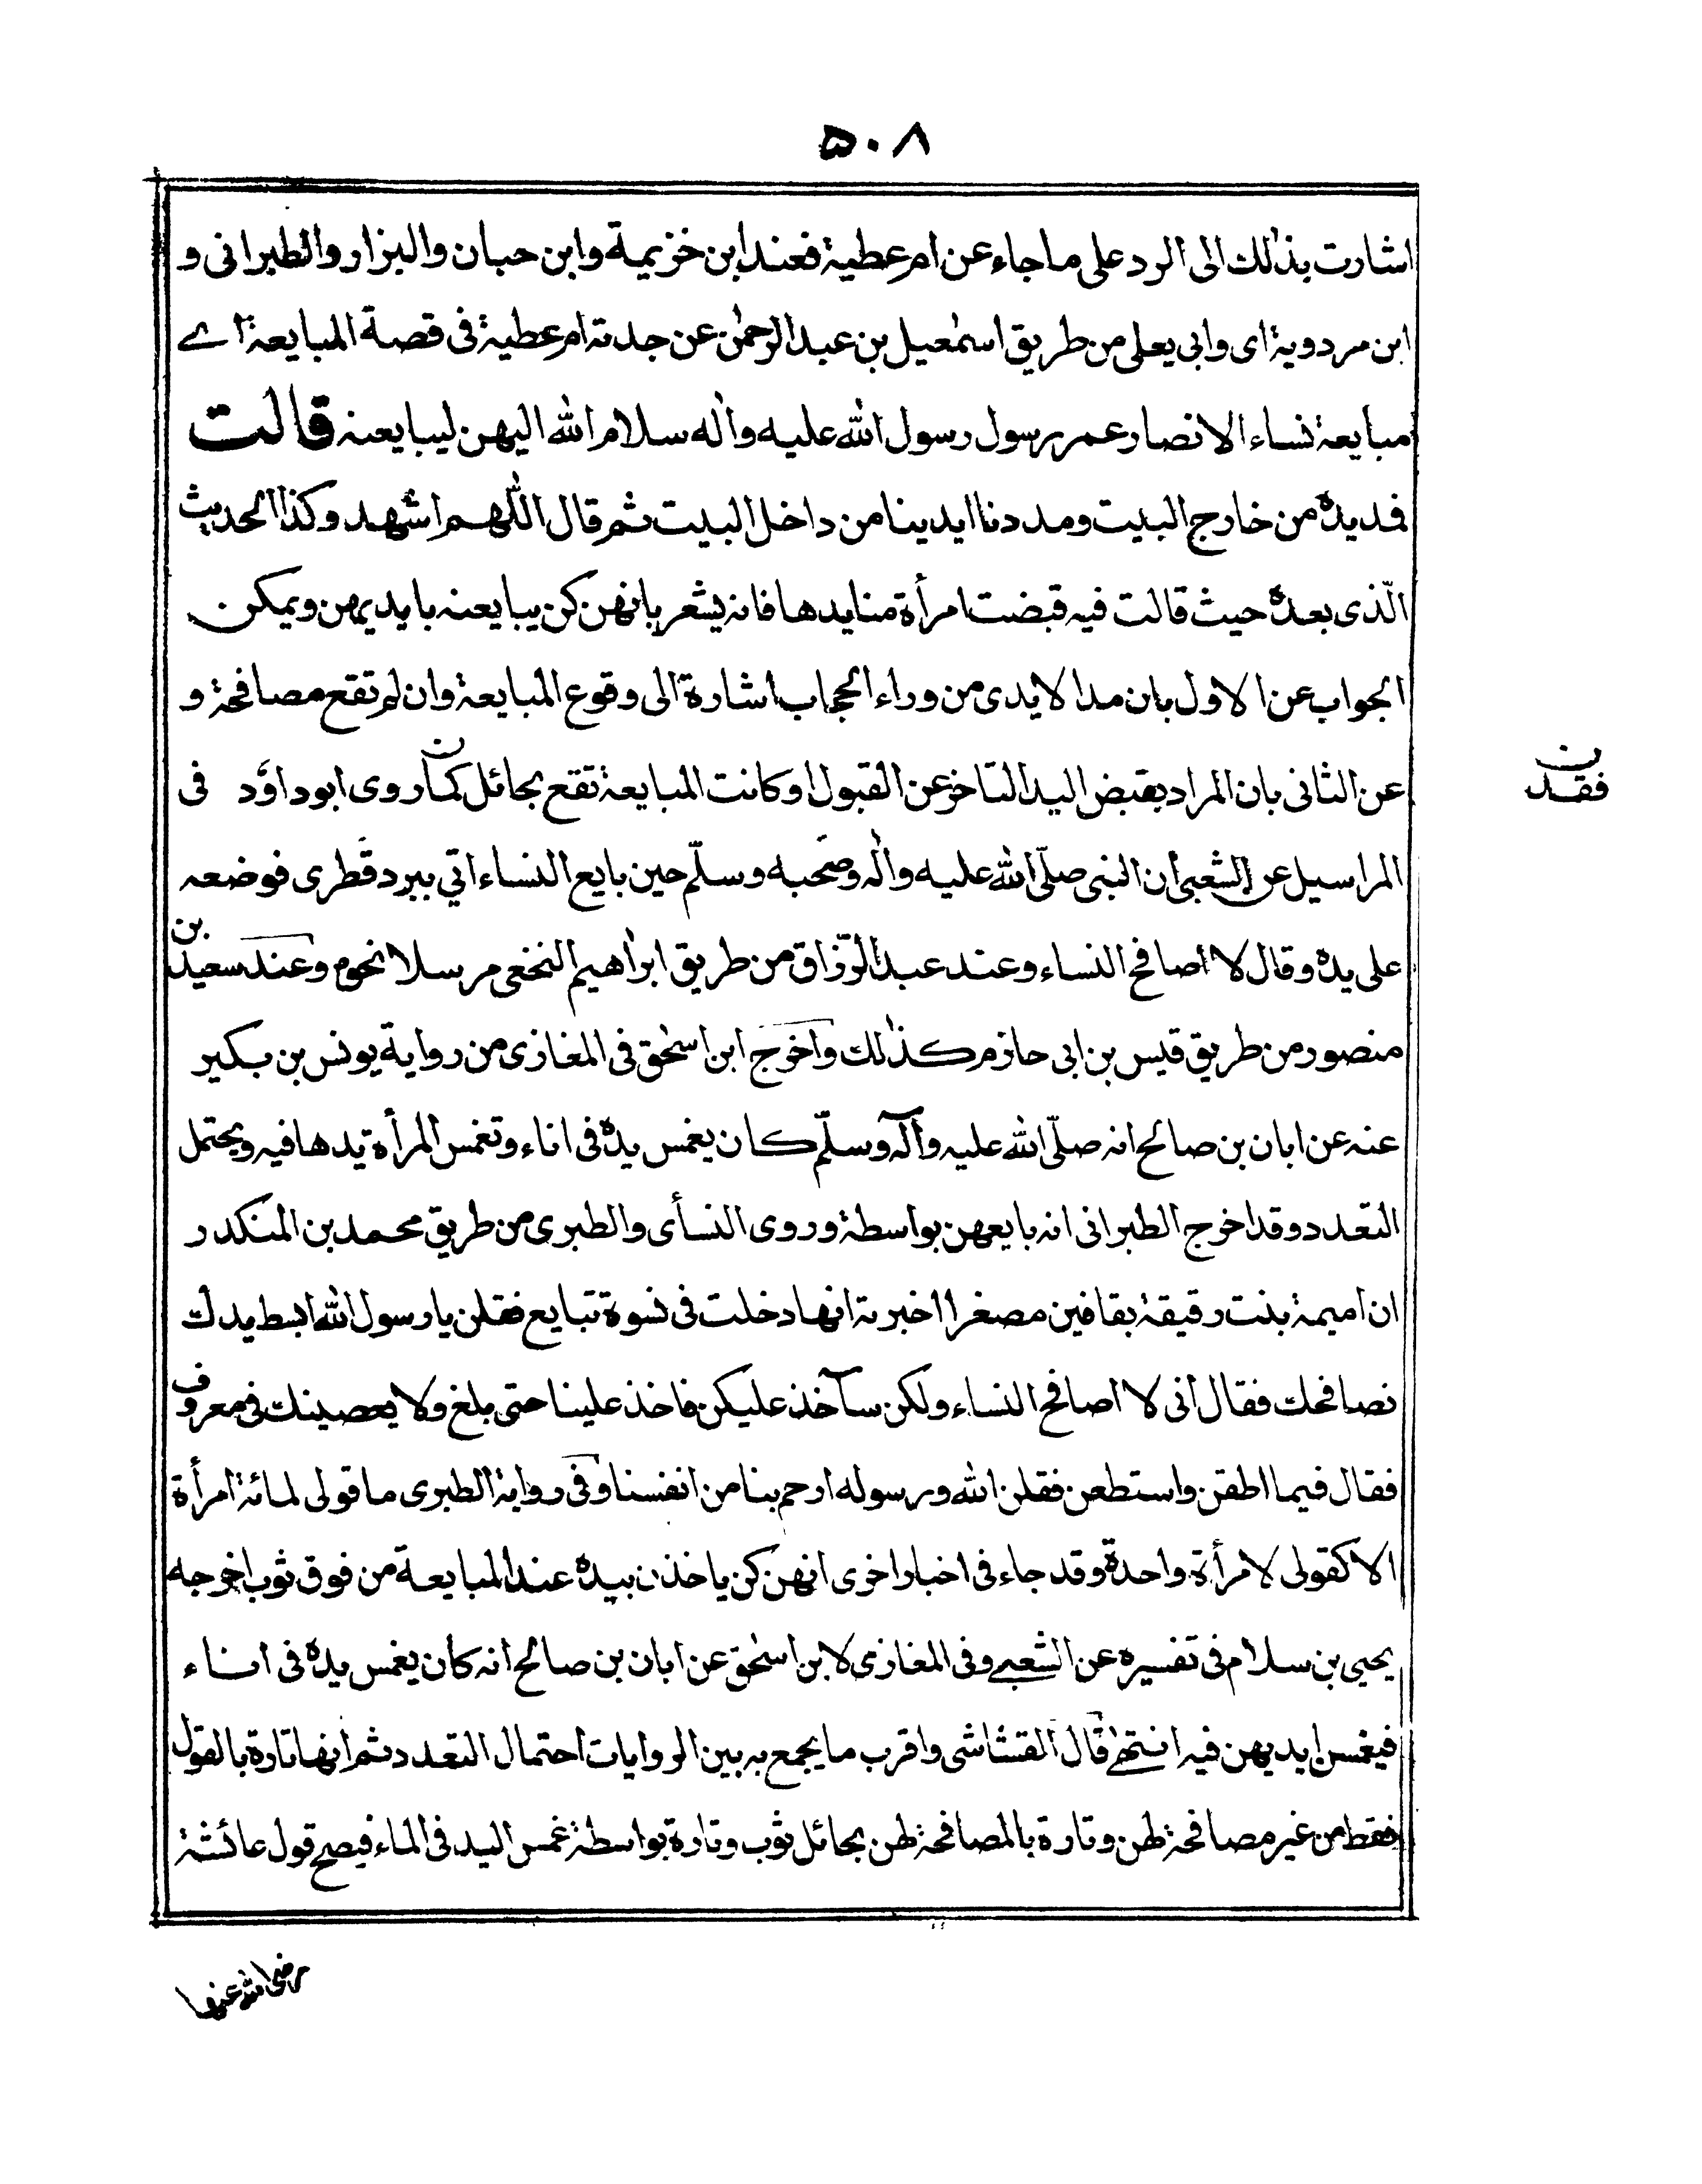 ٥٠٨
اشارت بذٰلك الى الرد على ما جاء عن ام عطية فعند ابن خزيمة وابن حبان والبزار والطبرانى و
ابن مردوية اى وابى يعلى من طريق اسمٰعيل بن عبد الرحمٰن عن جدته ام عطية فى قصة المبايعة اے
مبايعة نساء الانصار عمر رسول رسول الله عليه واٰله سلام الله اليهن ليبايعنه قالت
فمد يدهٗ من خارج البيت ومددنا ايدينا من داخل البيت ثم قال اللّٰهم اشهد وكذا الحديث
الّذى بعدهٗ حيث قالت فيه قبضت امرأة منا يدها فانه يشعر بانهن كن يبايعنه بايديهن ويمكن
الجواب عن الاول بان مد الايدى من وراء الحجاب اشارة الى وقوع المبايعة وان لم تقع مصافحة و
عن الثانى بان المراد بقبض اليد التاخر عن القبول او كانت المبايعة تقع بحائل كما روى ابو داوٗد فى
ن
فقد
المراسيل عن الشعبى أن النبى صلّى الله عليه واٰله وصحبه وسلّم حين بايع النساء اتي ببرد قطرى فوضعه
على يدهٖ وقال لا اصافح النساء وعند عبد الرّزاق من طريق ابراٰهيم النخعى مرسلا نحوهٗ وعند سعيد بن
منصور من طريق قيس بن ابى حازم كذٰلك واخرج ابن اسحٰق فى المغازى من رواية يونس بن بكير
عنه عن ابان بن صالح انه صلّى الله عليه وآلهٖ وسلّم كان يغمس يدهٗ فى اناء وتغمس المرأة يدها فيه ويحتمل
التعدد وقد اخرج الطبرانى انه بايعهن بواسطة وروى النسأى والطبرى من طريق محمد بن المنكدر
ان اميمة بنت رقيقة بقافين مصغرا اخبرته انها دخلت فى نسوة تبايع فقلن يا رسول الله ابسط يدك
نصافحك فقال انى لا اصافح النساء ولكن سآخذ عليكن فاخذ علينا حتى بلغ ولا يعصينك فى معروف
فقال فيما اطقن واستطعن فقلن الله ورسوله ارحم بنا من انفسنا وفى رواية الطبرى ما قولى لمائة امرأة
الا كقولى لامرأة واحدة وقد جاء فى اخبار اخرى انهن كن ياخذن بيدهٖ عند المبايعة من فوق ثوب اخرجه
يحيى بن سلام فى تفسيره عن الشعبے وفى المغازى لابن اسحٰق عن ابان بن صالح انه كان يغمس يدهٗ فى اناء
فيغمسن ايديهن فيه انتهٰے قال القشاشى واقرب ما يجمع به بين الروايات احتمال التعدد ثم انها تارة بالقول
فقط من غير مصافحة لهن وتارة بالمصافحة لهن بحائل ثوب وتارة بواسطة غمس اليد فى الماء فيصح قول عائشة
رضى الله عنها